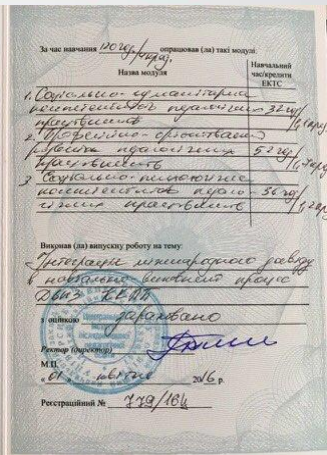 За час навчання 120 год/4 кред. опрацював (ла) такі модулі:
Назва модуля
Навчальний
час/кредити
ЕКТС
1. Соціально-гуманітарна
компетентність педагогічних 32 год/
працівників
2. Професійно-
розвиток педагогічних 52 год/
працівників
3. Соціально-психологічна
компетентність педаго- 36 год/
гічних працівників
Виконав (ла) випускну роботу на тему:
Інтеграція міжнародного досвіду
в навчально виховний процес
ДВНЗ
з оцінкою зараховано
Ректор (директор)
М.П.
« 01 » 2016 р.
Реєстраційний № 779/16Ц